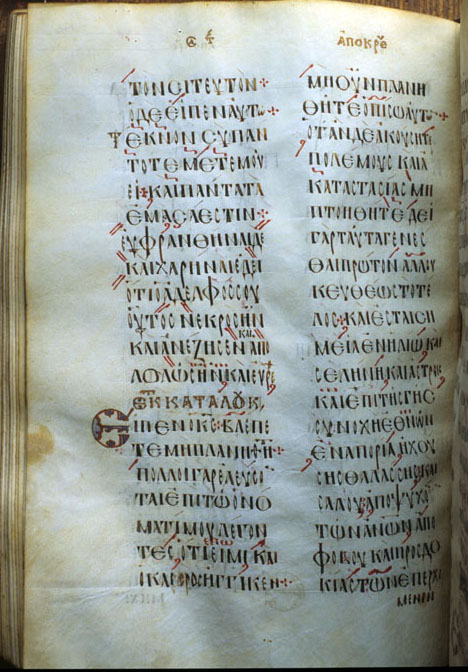 ΑΠΟΚΡΕ
ΤΟΝϹΙΤΕΥΤΟΝ
ΟΔΕΕΙΠΕΝΑΥΤΩ
ΤΕΚΝΟΝϹΥΠΑΝ
ΤΟΤΕΜΕΤΕΜΟΥ
ΕΙ+ΚΑΙΠΑΝΤΑΤΑ
ΕΜΑϹΑΕϹΤΙΝ+
ΕΥΦΡΑΝΘΗΝΑΙΔΕ
ΚΑΙΧΑΡΗΝΑΙΕΔΕΙ
ΟΤΙΟΑΔΕΛΦΟϹϹΟΥ
ΟΥΤΟϹΝΕΚΡΟϹΗΝ
ΚΑΙ
ΚΑΙΑΝΕΖΗϹΕΝΑΠΟ
ΛΟΛΩϹΗΝΚΑΙΕΥΡΕ
ΕΚΚΑΤΑΛΟΥΚ
ΕΙΠΕΝΟΚϹΒΛΕΠΕ
ΤΕΜΗΠΛΑΝΗΘΗ
ΠΟΛΛΟΙΓΑΡΕΛΕΥϹΟ
ΤΑΙΕΠΙΤΩΟΝΟ
ΜΑΤΙΜΟΥΛΕΓΟΝ
ΕΓΩ
ΤΕϹΟΤΙΕΙΜΙΚΑΙ
ΟΚΑΙΡΟϹΗΓΓΙΚΕΝ+
ΜΗΟΥΝΠΛΑΝΗ
ΘΗΤΕΟΠΙϹΩΑΥΤΩ+
ΟΤΑΝΔΕΑΚΟΥϹΗΤΕ
ΠΟΛΕΜΟΥϹΚΑΙΑ
ΚΑΤΑϹΤΑϹΙΑϹΜΗ
ΠΤΟΗΘΗΤΕΔΕΙ
ΓΑΡΤΑΥΤΑΓΕΝΕϹ
ΘΑΙΠΡΩΤΟΝΑΛΛΟΥ
ΚΕΥΘΕΩϹΤΟΤΕ
ΛΟϹ+ΚΑΙΕϹΤΑΙϹΗ
ΜΕΙΑΕΝΗΛΙΩΚΑΙ
ϹΕΛΗΝΗΚΑΙΑϹΤΡΟΙϹ
ΚΑΙΕΠΙΤΗϹΓΗϹ
ϹΥΝΟΧΗΕΘΝΩΝ
ΕΝΑΠΟΡΙΑΗΧΟΥ
ϹΗϹΘΑΛΑϹϹΗϹΚΑΙ
ϹΑΛΟΥΑΠΟΨΥΧΟ
ΤΩΝΑΝΩΝΑΠΟ
ΦΟΒΟΥΚΑΙΠΡΟϹΔΟ
ΚΙΑϹΤΩΝΕΠΕΡΧΟ
ΜΕΝΩΝ